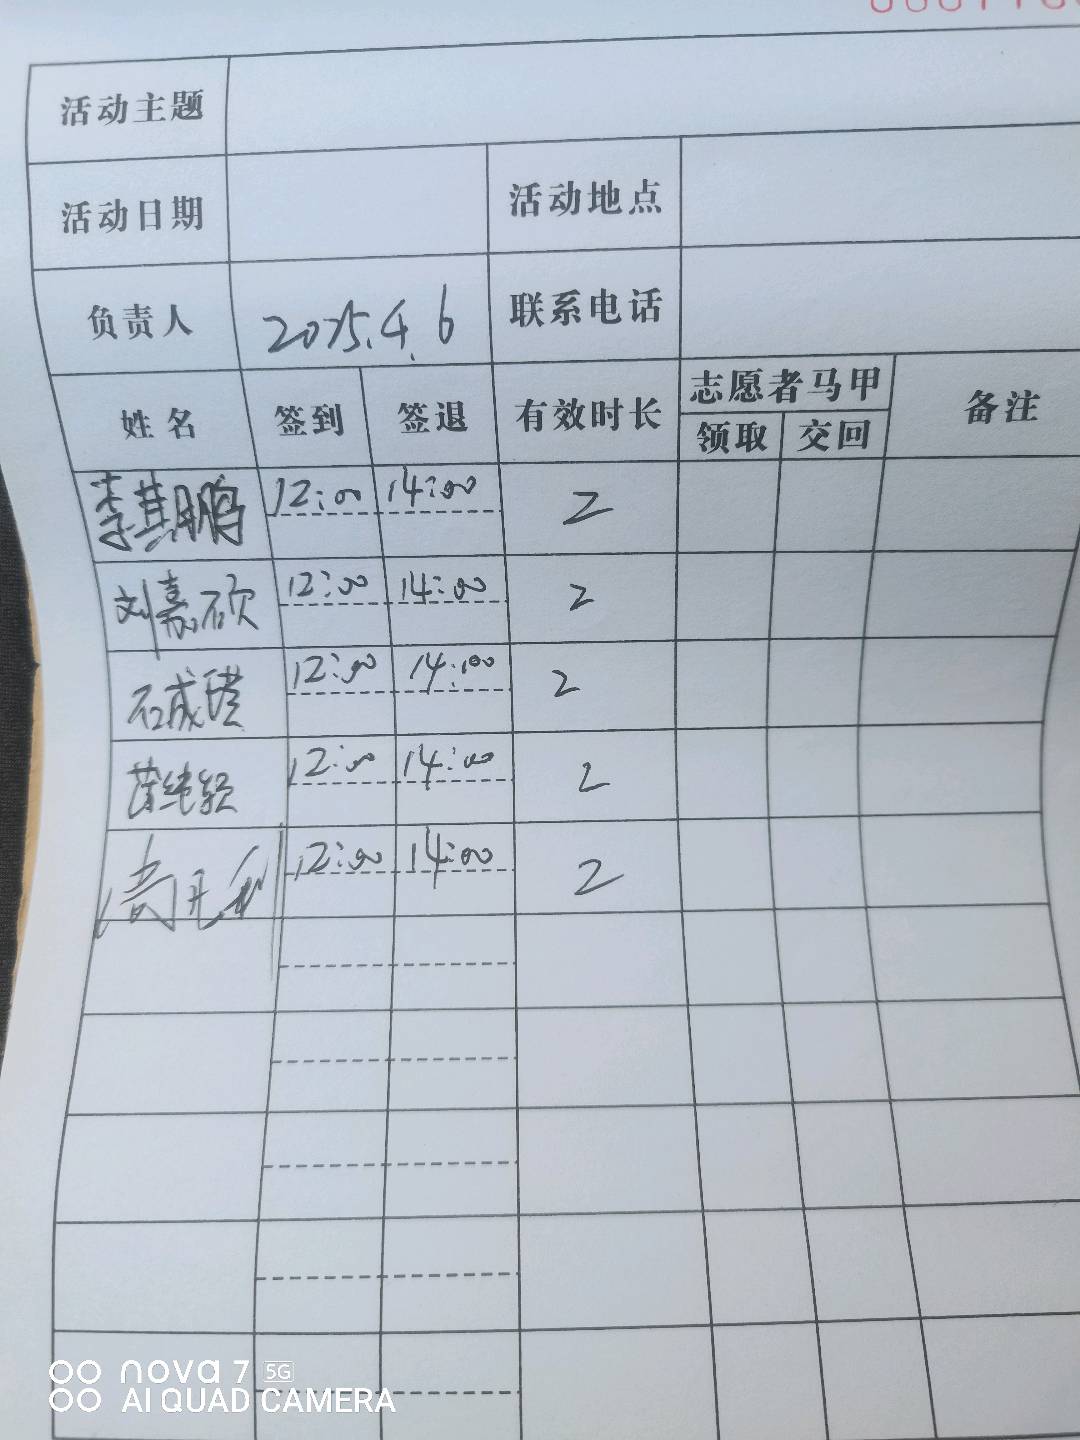 活动主题
活动日期 活动地点
负责人 2025.4.6 联系电话
姓名 签到 签退 有效时长 志愿者马甲 备注
领取 交回
李其鹏 12:00 14:00 2
刘嘉硕 12:00 14:00 2
石成 12:00 14:00 2
12:00 14:00 2
12:00 14:00 2
nova 7 5G
AI QUAD CAMERA